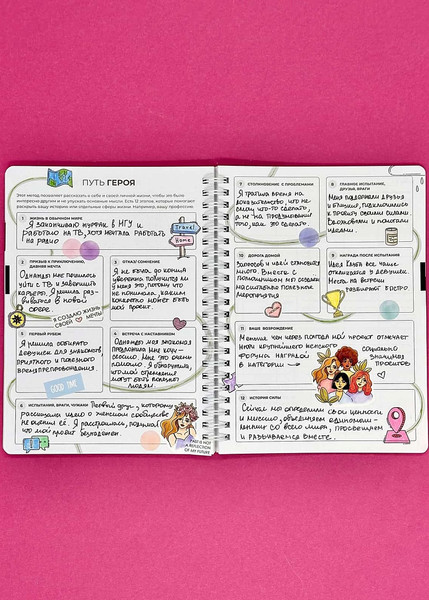 ПУТЬ ГЕРОЯ
Этот метод позволяет рассказать о себе и своей личной жизни, чтобы это было
интересно другим и не упускать основные мысли. Есть 12 этапов, которые помогают
раскрыть вашу историю или отдельные сферы жизни. Например, вашу профессию.
1 ЖИЗНЬ В ОБЫЧНОМ МИРЕ
Я заканчиваю журфак в НГУ и
работаю на ТВ, хотя мечтала работать
на радио
Travel
Home
2 ПРИЗЫВ К ПРИКЛЮЧЕНИЮ,
ДАВНЯЯ МЕЧТА
Однажды мне пришлось
уйти с ТВ и завершить
карьеру. Я решила раз-
виваться в новой
сфере.
Я СОЗДАЮ ЖИЗНЬ
СВОЕЙ МЕЧТЫ
3 ОТКАЗ/СОМНЕНИЕ
Я не была до конца
уверена, получится ли
у меня это, потому что
не понимала, каким
конкретно может быть
мой проект.
5 ПЕРВЫЙ РУБЕЖ
Я решила собирать
девушек для знакомств,
приятного и полезного
времяпрепровождения
GOOD TIME
4 ВСТРЕЧА С НАСТАВНИКОМ
Однажды моя знакомая
предложила мне коуч-
сессию. Мне это очень
помогло. Я обнаружила,
что мои стремления
могут быть полезны
людям
6 ИСПЫТАНИЯ, ВРАГИ, ЧУЖАКИ
Первый друг, которому
рассказала идею о женском сообществе
не оценил её. Я расстроилась, подумала,
что мой проект безнадежен.
PAST IS NOT
A REFLECTION
OF MY FUTURE
7 СТОЛКНОВЕНИЕ С ПРОБЛЕМАМИ
Я тратила время на
доказательство, что не
смогу что-то сделать,
а не на придумывание
того, как это сделать.
8 ГЛАВНОЕ ИСПЫТАНИЕ,
ДРУЗЬЯ, ВРАГИ
Меня поддержали друзья
и близкие, подключились
к проекту своими силами.
Вдохновили и помогали
10 ДОРОГА ДОМОЙ
Запросов и идей становится
много. Вместе с
помощниками мы создаем
масштабные полезные
мероприятия
9 НАГРАДА ПОСЛЕ ИСПЫТАНИЯ
Идея клуба все чаще
откликается у девушек.
Места на встречи
разбирают быстро.
11 ВАШЕ ВОЗРОЖДЕНИЕ
Меньше чем через полгода мой проект отмечает
жюри крупнейшего женского
форума наградой
в категории
социально
значимых
проектов
12 ИСТОРИЯ СИЛЫ
Сейчас мы определили свои ценности
и миссию, объединяем единомыш-
ленниц со всего мира, просвещаем
и развиваемся вместе.